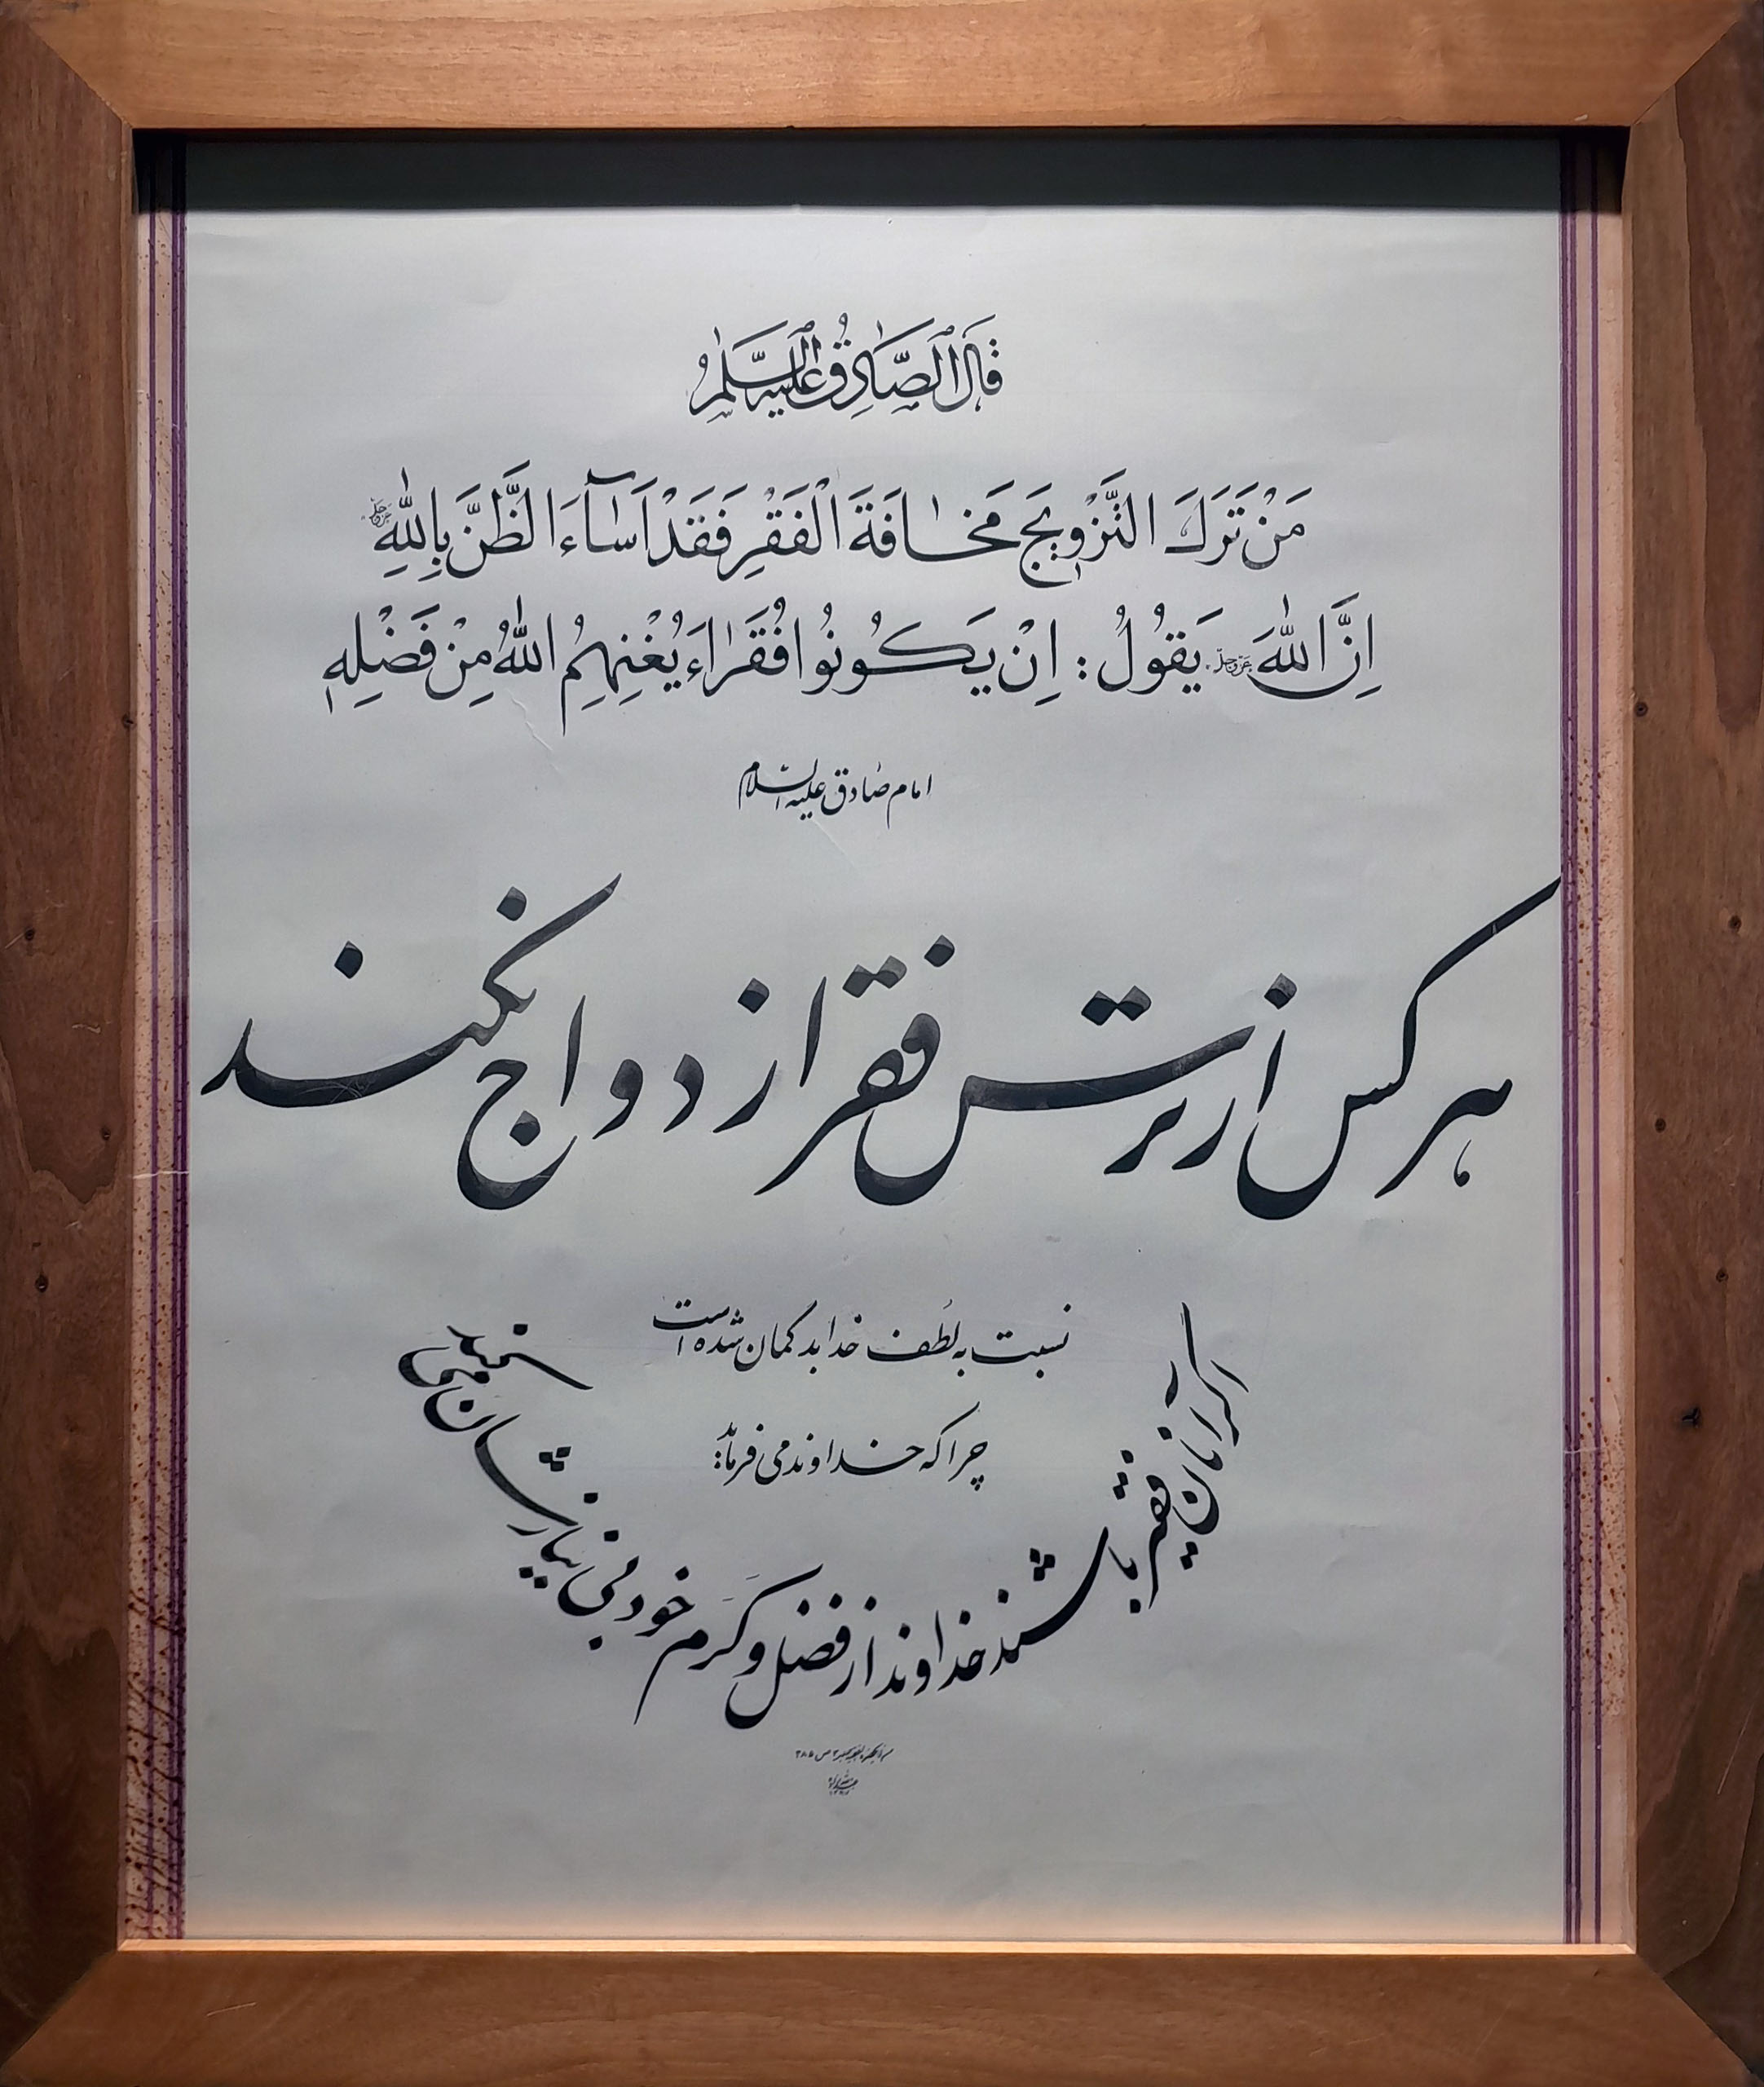 قَالَ ٱلصَّادِقُ عَلَيْهِ ٱلسَّلَٰمُ
مَنْ تَرَكَ التَّزْوِيجَ مَخَافَةَ الْفَقْرِ فَقَدْ اَسَاءَ الظَّنَّ بِاللّٰهِ عَزَّوَجَلَّ
اِنَّ اللّٰهَ عَزَّوَجَلَّ يَقُولُ : اِنْ يَكُونُوا فُقَرَاءَ يُغْنِهِمُ اللّٰهُ مِنْ فَضْلِهِ
امام صادق علیه السلام
هر کس از ترس فقر ازدواج نکند
نسبت به لطف خدا بدگمان شده است
چرا که خداوند می فرماید:
اگر آنان فقیر باشند خداوند از فضل و کرم خود بی نیازشان می‌کند
ص ٣٨٥